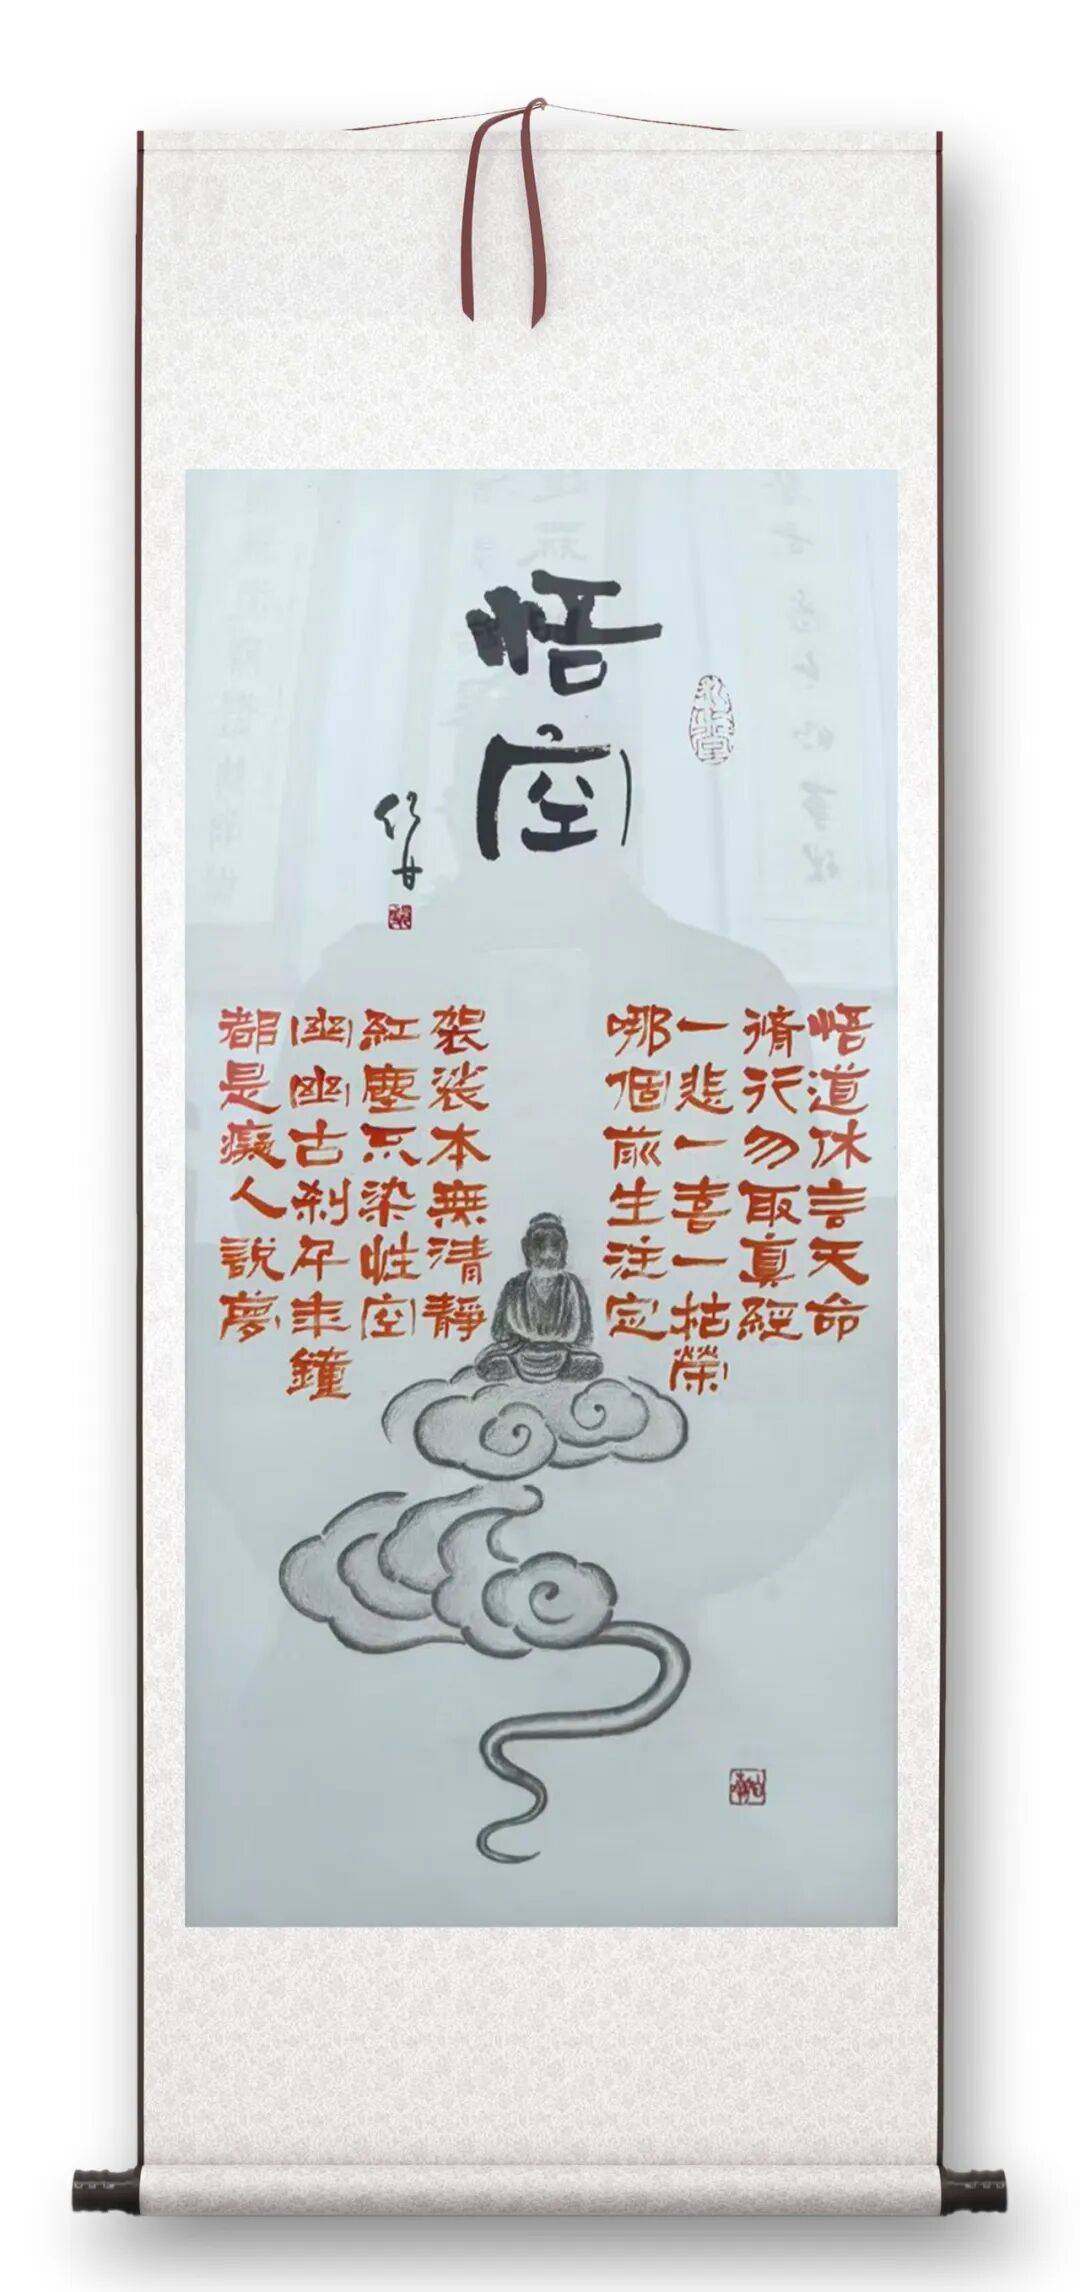 悟空
悟道休言天命
脩行勿取真經
一悲一喜一枯榮
哪個前生注定
袈裟本無清靜
紅塵不染性空
幽幽古剎千年鐘
都是癡人說夢